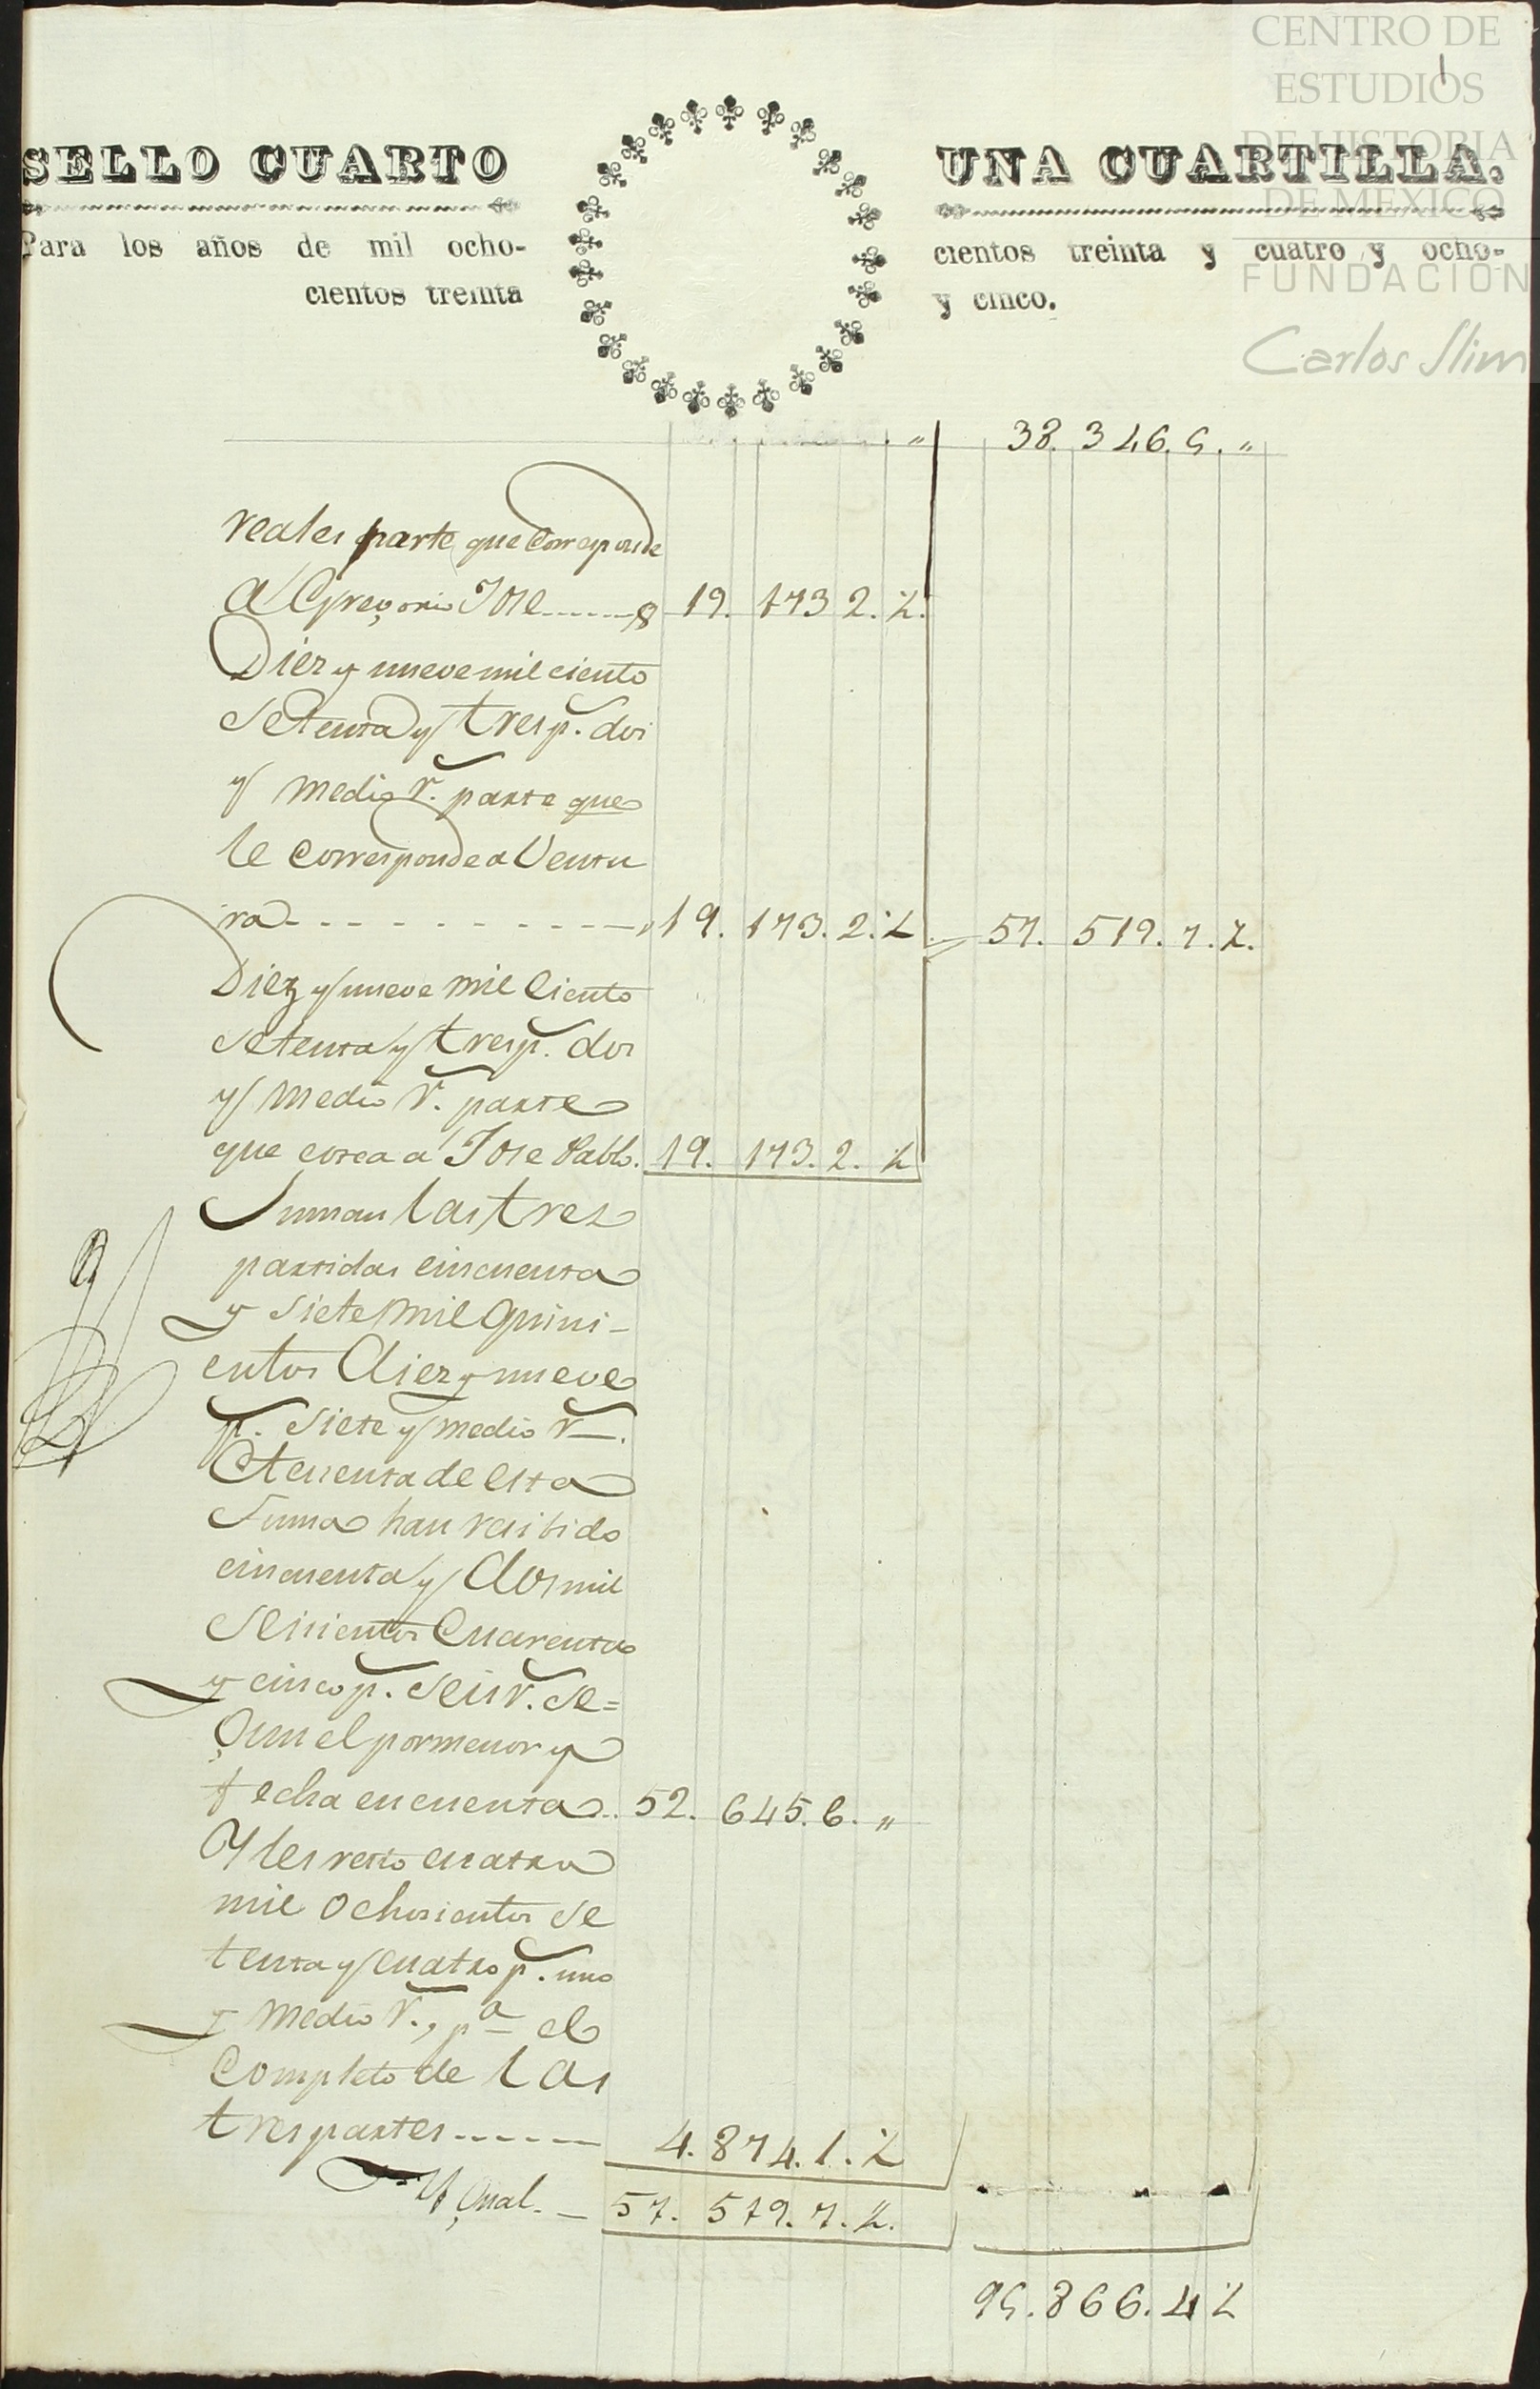 CENTRO DE
ESTUDIOS
DE HISTORIA
DE MEXICO
FUNDACION
Carlos Slim
1
SELLO CUARTO UNA CUARTILLA.
Para los años de mil ocho- cientos treinta y cuatro y ocho-
cientos treinta y cinco.
" 38. 346. 5. "
reales parte que Corresponde
a Gregorio Jose------ $ 19. 173 2. ½.
Diez y nueve mil ciento
setenta y tres p. dos
y medio r. parte que
le corresponde a Ventu
ra - - - - - - - - - - " 19. 173. 2. ½ 57. 519. 7. ½.
Diez y nueve mil ciento
setenta y tres p. dos
y medio r. parte
que toca a Jose Pablo. 19. 173. 2. ½
Suman las tres
partidas cincuenta
y siete mil quini-
entos diez y nueve
p. siete y medio r.
A cuenta de esta
suma han resibido
cincuenta y dos mil
seisientos Cuarenta
y cinco p. seis r. se=
gun el pormenor y
fecha en cuenta.. 52. 645. 6. "
Y les resto cuatro
mil ochosientos se
tenta y cuatro p. uno
y medio r., pa el
completo de las
tres partes----- 4. 874. 1. ½
Ygual. — 57. 519. 7. ½.
95. 866. 4 ½